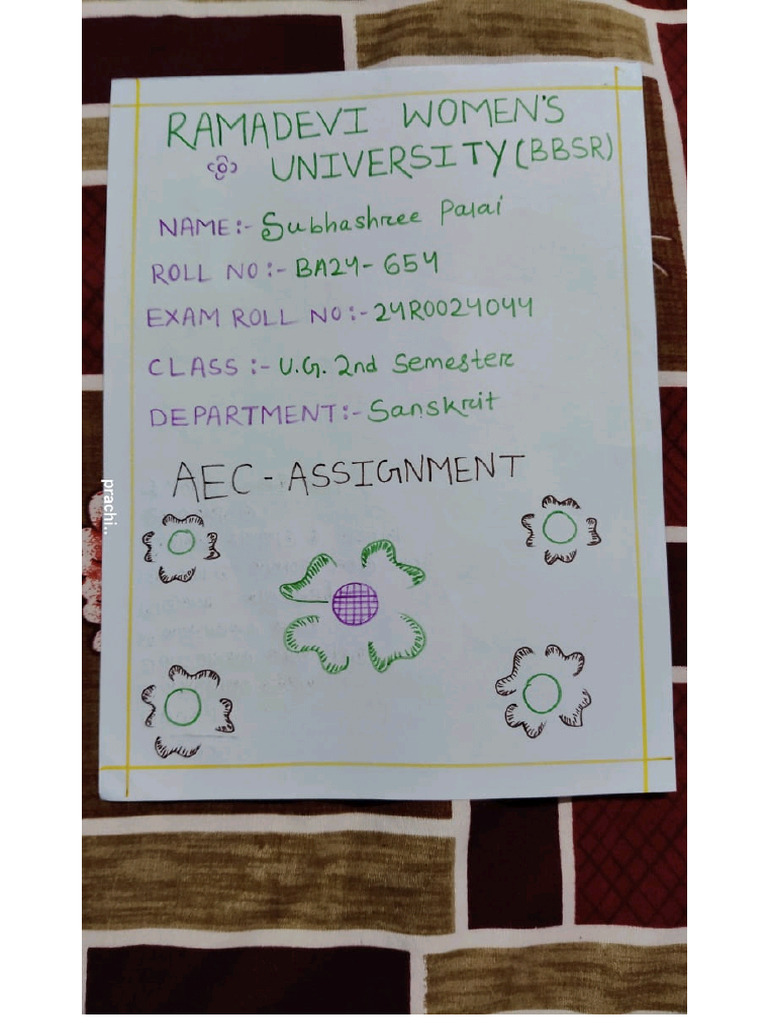 RAMADEVI WOMEN'S
UNIVERSITY (BBSR)
NAME:- Subhashree Palai
ROLL NO:- BA24-654
EXAM ROLL NO:- 24R0024044
CLASS:- U.G. 2nd Semester
DEPARTMENT:- Sanskrit
AEC - ASSIGNMENT
prachi..